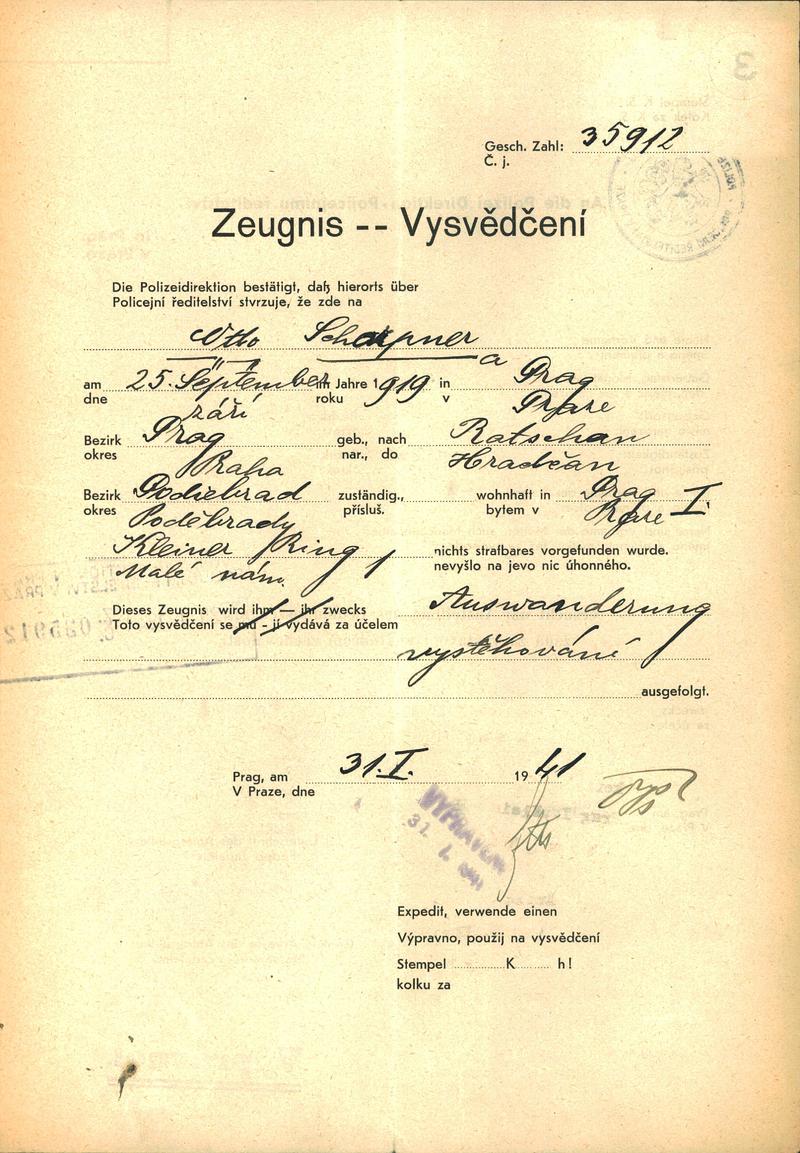 Gesch. Zahl: 35912
Č. j.
Zeugnis -- Vysvědčení
Die Polizeidirektion bestätigt, daß hierorts über
Policejní ředitelství stvrzuje, že zde na
Otto
a
am 25. September im Jahre 1919 in Prag
dne září roku v Praze
Bezirk Prag geb., nach Ratschan
okres Praha nar., do Hradčan
Bezirk Podiebrad zuständig., wohnhaft in Prag I.
okres Poděbrady přísluš. bytem v Praze
Kleiner Ring 1 nichts strafbares vorgefunden wurde.
Malé nám. nevyšlo na jevo nic úhonného.
Dieses Zeugnis wird ihm — ihr zwecks Auswanderung
Toto vysvědčení se mu - jí vydává za účelem
vystěhování
ausgefolgt.
Prag, am 31. I. 1941
V Praze, dne
VYPRAVENO
31. I. 1941
Expedit, verwende einen
Výpravno, použij na vysvědčení
Stempel K h!
kolku za